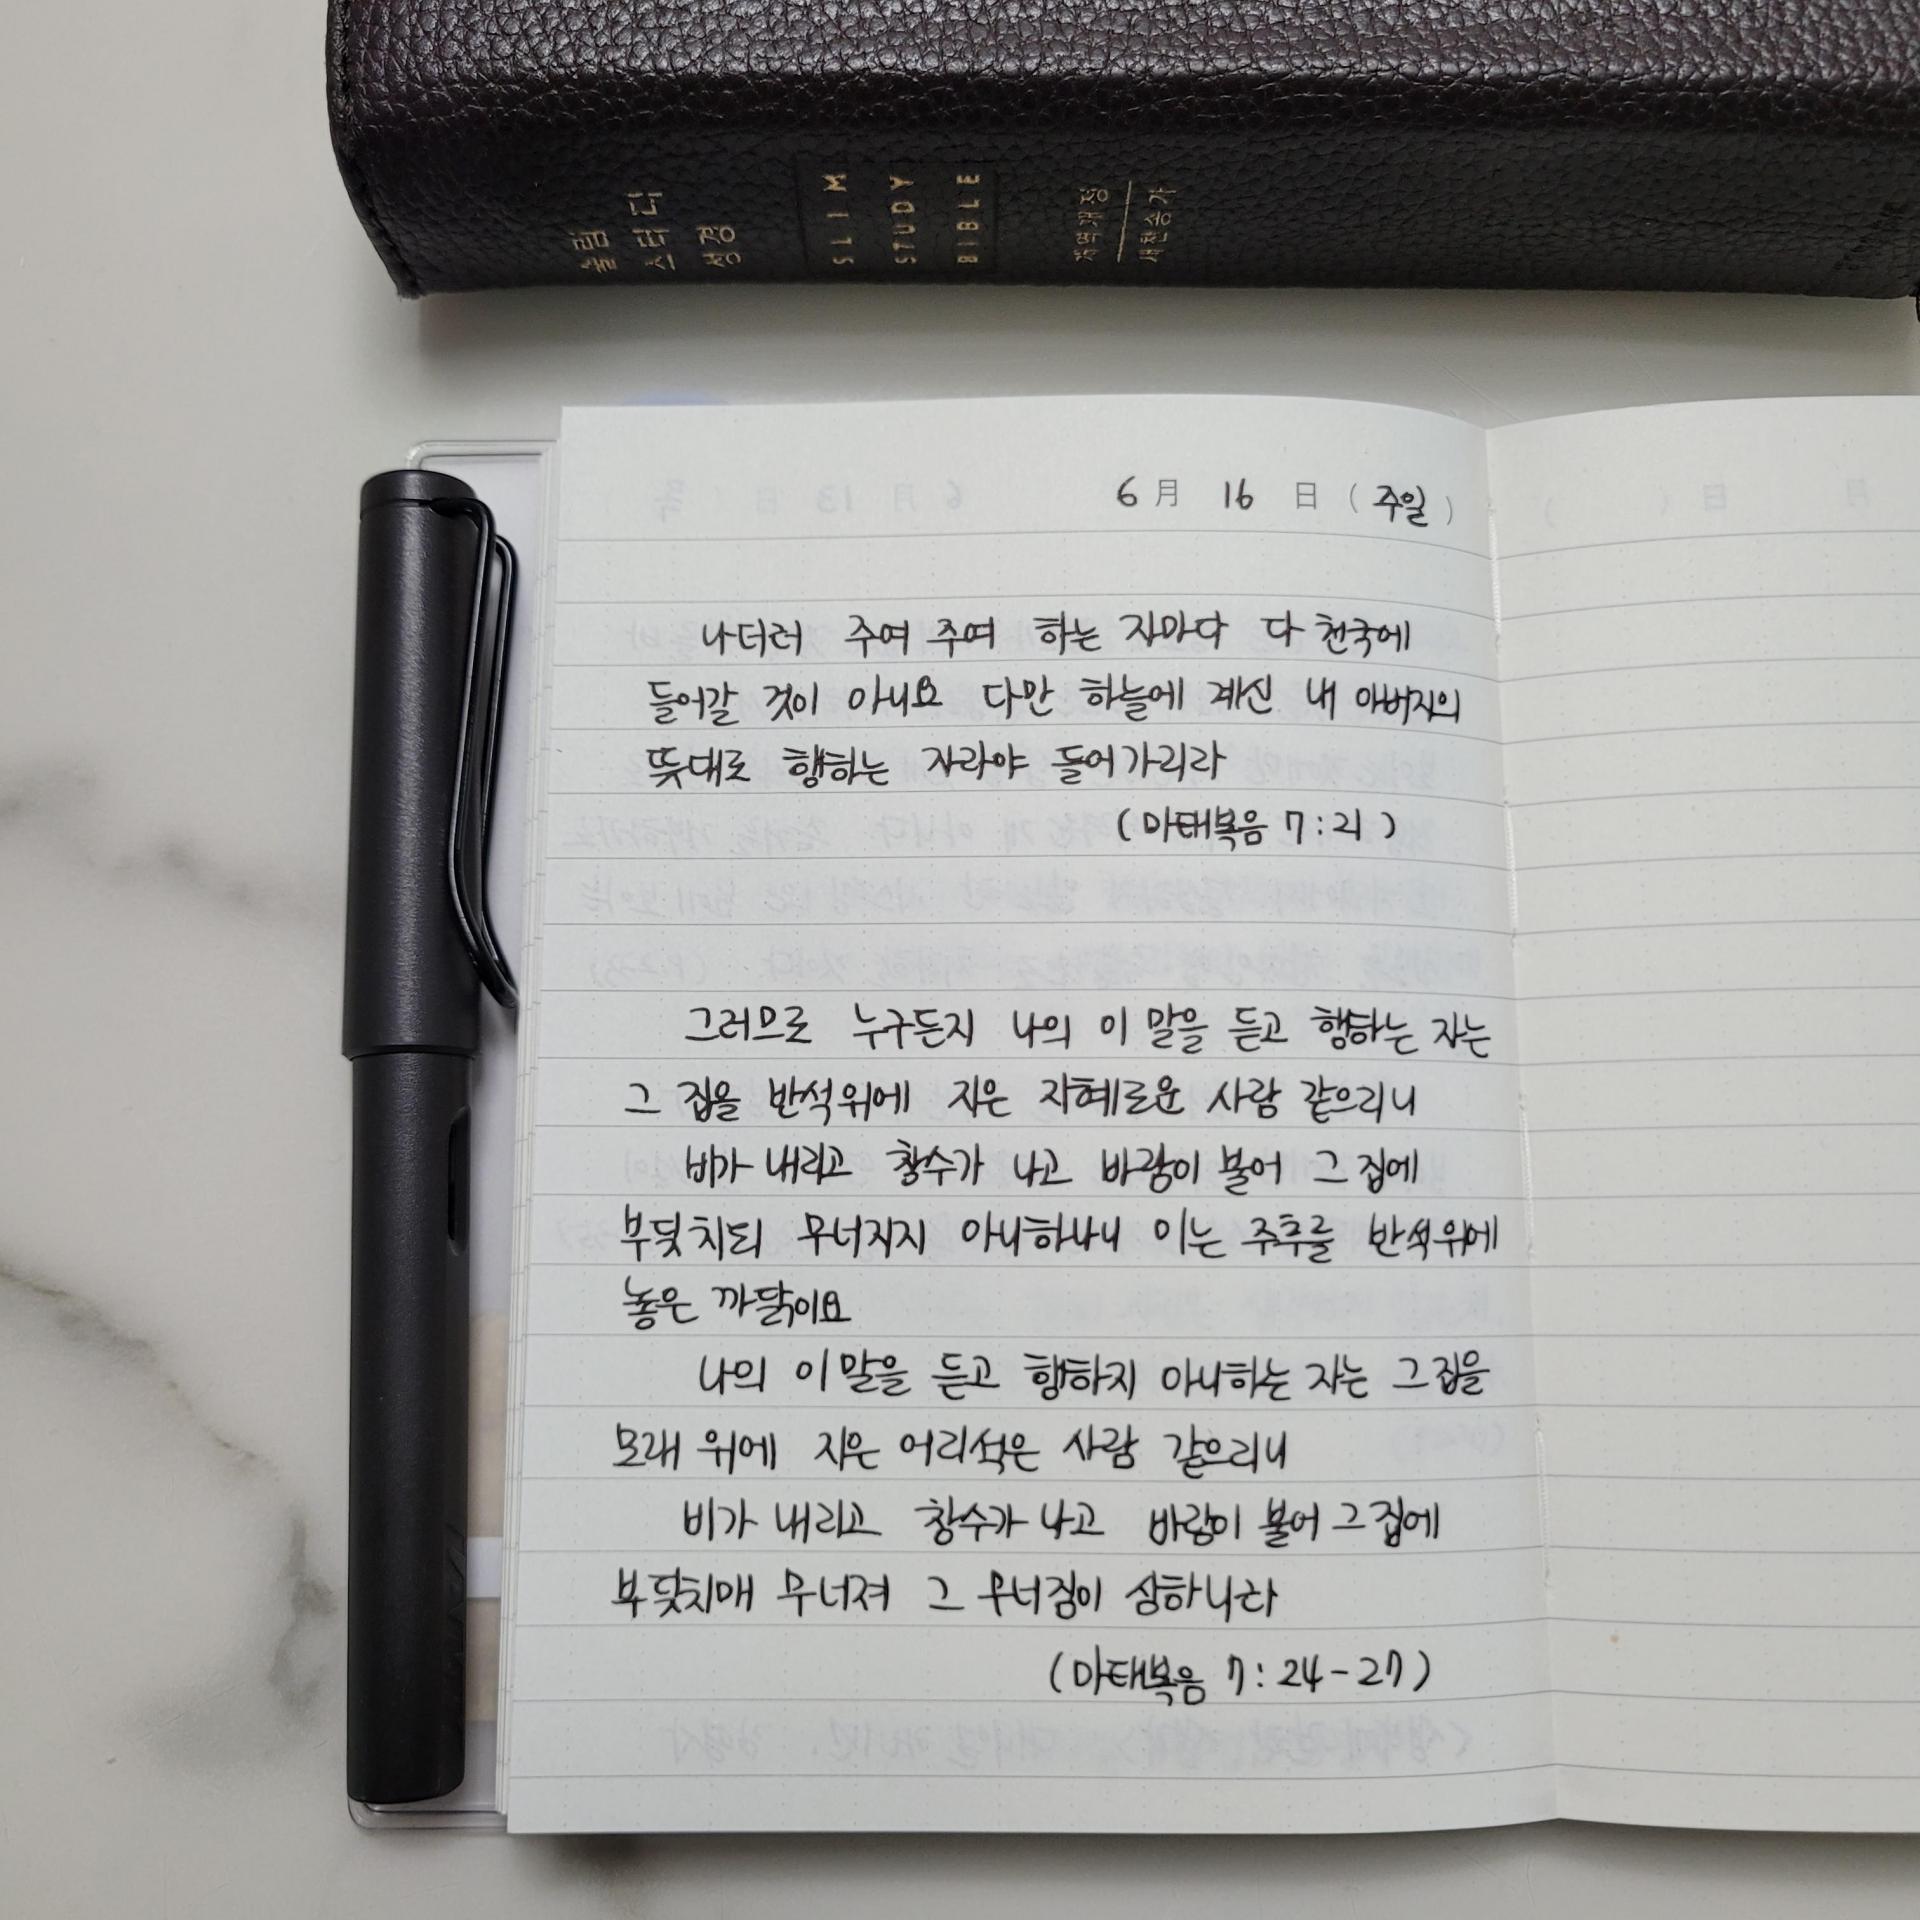 슬림
스터디
성경
SLIM
STUDY
BIBLE
개역개정
새찬송가
6月 16 日 (주일)
나더러 주여 주여 하는 자마다 다 천국에
들어갈 것이 아니요 다만 하늘에 계신 내 아버지의
뜻대로 행하는 자라야 들어가리라
(마태복음 7:21)
그러므로 누구든지 나의 이 말을 듣고 행하는 자는
그 집을 반석위에 지은 지혜로운 사람 같으리니
비가 내리고 창수가 나고 바람이 불어 그 집에
부딪치되 무너지지 아니하나니 이는 주추를 반석위에
놓은 까닭이요
나의 이 말을 듣고 행하지 아니하는 자는 그 집을
모래 위에 지은 어리석은 사람 같으리니
비가 내리고 창수가 나고 바람이 불어 그 집에
부딪치매 무너져 그 무너짐이 심하니라
(마태복음 7:24-27)